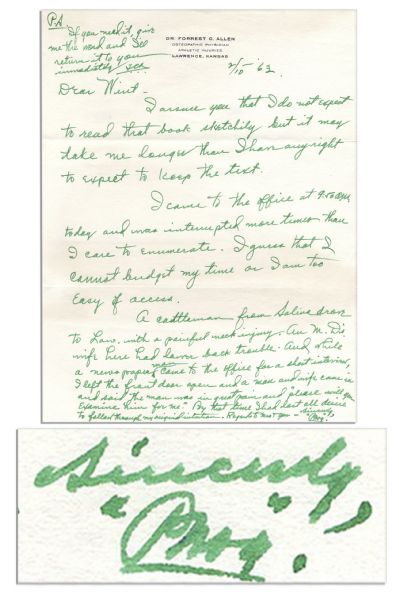 P.S.
If you need it, give
me the word and I'll
return it to you
immediately
DR. FORREST C. ALLEN
OSTEOPATHIC PHYSICIAN
ATHLETIC INJURIES
LAWRENCE, KANSAS
2/10 - '63.
Dear Wint -
I assure you that I do not expect
to read that book sketchily but it may
take me longer than I have any right
to expect to keep the text.
I came to the office at 9:00 a.m.
today and was interrupted more times than
I care to enumerate. I guess that I
cannot budget my time or I am too
easy of access.
A cattleman from Salina drove
to Law. with a painful neck injury. An M. D's
wife here had lower back trouble. And while
a news came to the office for a short interview,
I left the front door open and a man and wife came in
and said the man was in great pain and "please will you
examine him for me." By that time I had lost all desire
to follow through my original intention. Regards to you -
Sincerely
"Phog".
Sincerely,
"Phog".